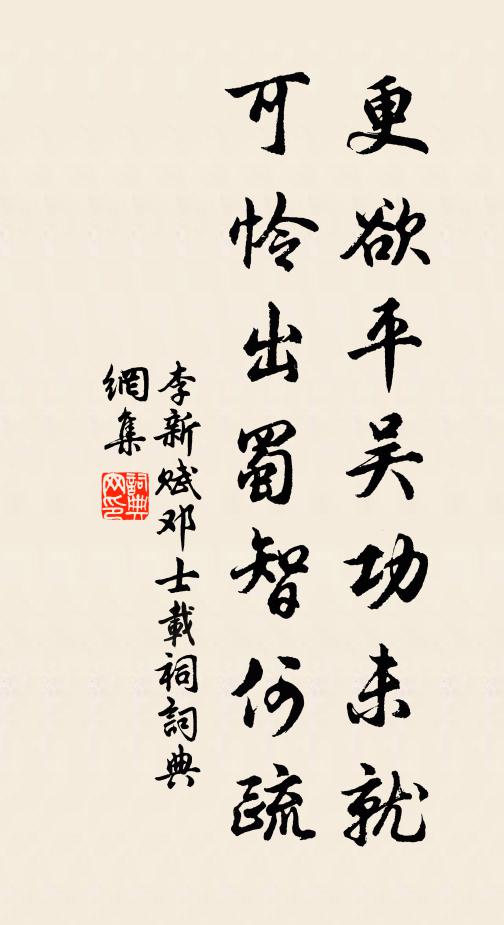 更欲平吴功未就
可怜出蜀智何疏
李新赋邓士載祠詞典
網集
詞典网印